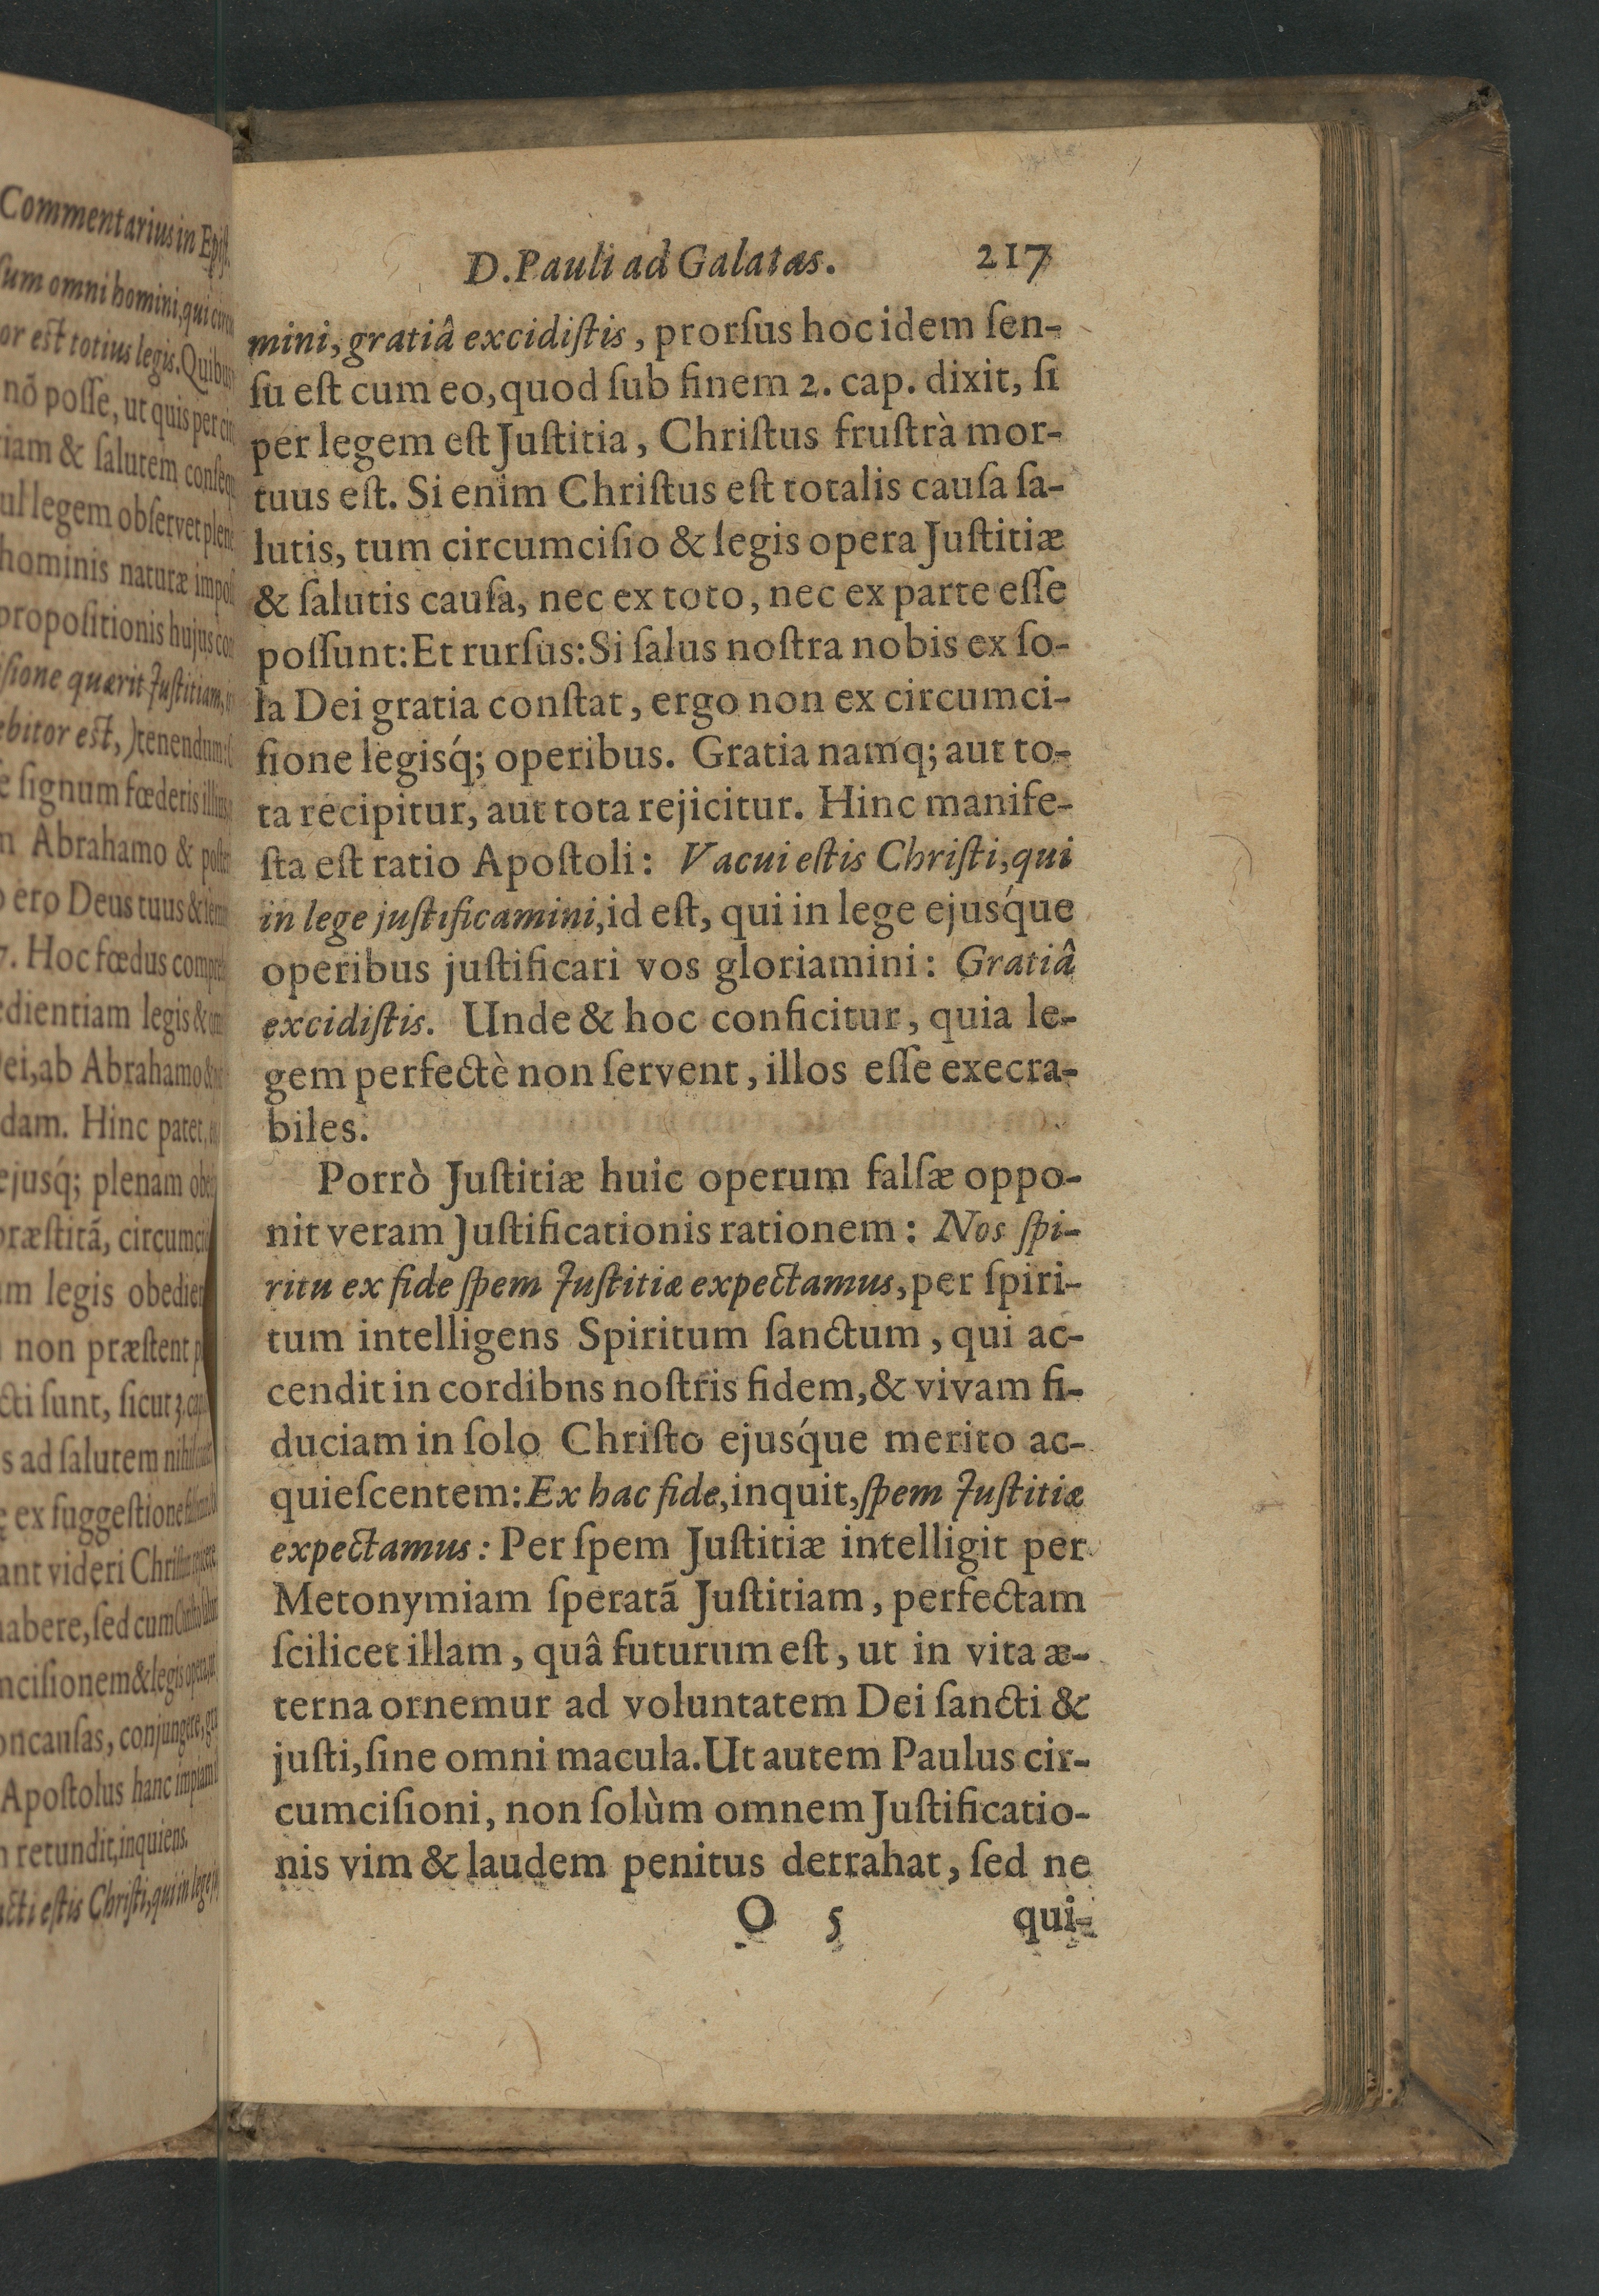 Commentarius in Epist.
sum omni homini, qui
or est totius legis. Quibus
nõ posse, ut quis per
iam & salutem
ul legem observet
hominis naturæ
propositionis hujus
sione quærit Justitiam,
ebitor est,) tenendum:
e signum fœderis
n Abrahamo &
ero Deus tuus &
7. Hoc fœdus
dientiam legis &
ei, ab Abrahamo
dam. Hinc patet,
ejusq́; plenam
præstitã,
m legis
non præstent
cti sunt, sicut 3.
s ad salutem
ex suggestione
ant videri
habere, sed cum
ncisionem & legis
oncausas, conjungere,
Apostolus hanc
retundit, inquiens.
cti estis Christi, qui in lege
D. Pauli ad Galatas. 217
mini, gratiâ excidiſtis, prorſus hoc idem ſen-
ſu eſt cum eo, quod ſub finem 2. cap. dixit, ſi
per legem eſt Juſtitia, Chriſtus fruſtrà mor-
tuus eſt. Si enim Chriſtus eſt totalis cauſa ſa-
lutis, tum circumciſio & legis opera Juſtitiæ
& ſalutis cauſa, nec ex toto, nec ex parte eſſe
poſſunt: Et rurſus: Si ſalus noſtra nobis ex ſo-
la Dei gratia conſtat, ergo non ex circumci-
ſione legisq́; operibus. Gratia namq; aut to-
ta recipitur, aut tota rejicitur. Hinc manife-
ſta eſt ratio Apoſtoli: Vacui eſtis Chriſti, qui
in lege juſtificamini, id eſt, qui in lege ejusq́ue
operibus juſtificari vos gloriamini: Gratiâ
excidiſtis. Unde & hoc conficitur, quia le-
gem perfectè non ſervent, illos eſſe execra-
biles.
Porrò Juſtitiæ huic operum falſæ oppo-
nit veram Juſtificationis rationem: Nos ſpi-
ritu ex fide ſpem Juſtitiæ expectamus, per ſpiri-
tum intelligens Spiritum ſanctum, qui ac-
cendit in cordibns noſtris fidem, & vivam fi-
duciam in ſolo Chriſto ejusq́ue merito ac-
quieſcentem: Ex hac fide, inquit, ſpem Juſtitiæ
expectamus: Per ſpem Juſtitiæ intelligit per
Metonymiam ſperatã Juſtitiam, perfectam
ſcilicet illam, quâ futurum eſt, ut in vita æ-
terna ornemur ad voluntatem Dei ſancti &
juſti, ſine omni macula. Ut autem Paulus cir-
cumciſioni, non ſolùm omnem Juſtificatio-
nis vim & laudem penitus detrahat, ſed ne
O 5 qui-